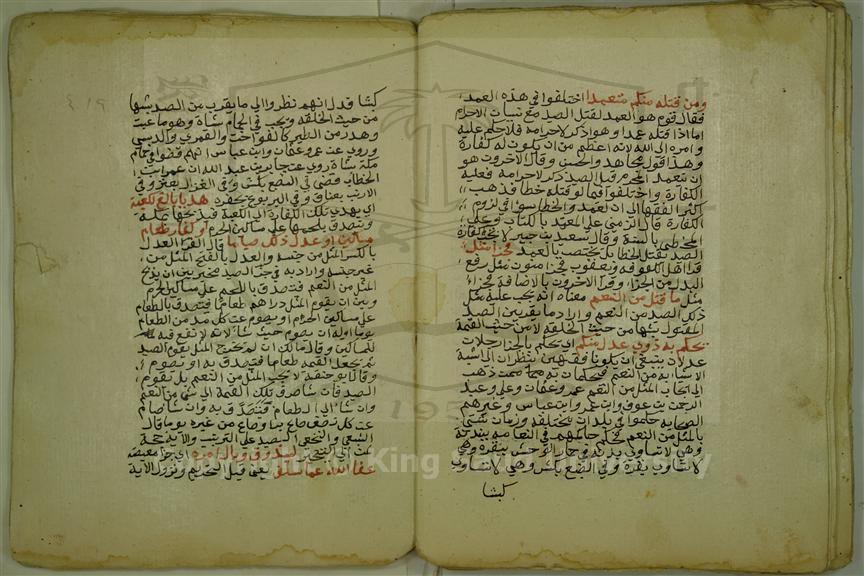 ومن قتله منكم متعمدا اختلفوا في هذه العمد
فقال قوم هو العمد لقتل الصيد مع نسيان الاحرام
اما اذا قتله عمدا وهو ذاكر لاحرامه فلا حكم عليه
وامره الى الله لانه اعظم من ان يكون له كفارة
وهذا قول مجاهد والحسن وقال الاخرون هو
ان يتعمد المحرم قتل الصيد ذاكر لاحرامه فعليه
الكفارة واختلفوا فيما لو قتله خطا فذهب
اكثر الفقها الى ان العمد والخطا سوا في لزوم
الكفارة قال الزهري على المتعمد بالكتاب وعلى
المخطي بالسنة وقال سعيد بن جبير لا تجب كفارة
الصيد بقتل الخطا بل يختص بالعمد فجزا مثل
قرا اهل الكوفه ويعقوب فجزا منون مثل رفع
البدل من الجزا وقرا الاخرون بالاضافة فجزاء
مثل ما قتل من النعم معناه انه يجب عليه مثل
ذلك الصيد من النعم واراد به ما يقرب من الصيد
المقتول شبها من حيث الخلقة لا من حيث القيمة
يحكم به ذوي عدل منكم اي يحكم بالجزا رجلان
عدلان ينبغي ان يكونا فقيهين ينظران الى
الاشيا به من النعم فيحكمان به ممن ذهب
الى ايجاب المثل من النعم عمر وعثمان وعلي وعبد
الرحمن بن عوف وابن عمر وابن عباس وغيرهم
الصحابه حكموا في بلدان مختلفة وازمان شتى
بالمثل من النعم يحكم حاكمهم في النعامه ببدنة
وهي لا تساوي بدنة وفي حمار الوحش ببقرة وهي
لا تساوي بقرة وفي الضبع بكبش وهي لا تساوي
كبشا
كبشا فدل انهم نظروا الى ما يقرب من الصيد شبها
من حيث الخلقه ويجب في الحمام شاة وهو ما عب
وهدر من الطير كالفواخت والقمري والدبسي
وروي عن عمر وعثمان وابن عباس انهم قضوا في حمام
مكة بشاة روي عن جابر بن عبد الله ان عمر ابن
الخطاب قضى في الضبع بكبش وفي الغزال بعنز وفي
الارنب بعناق وفي اليربوع بجفرة هديا بالغ الكعبة
اي يهدي تلك الكفارة الى الكعبة فيذبحها بمكة
ويتصدق بلحمها على مساكين الحرم او كفارة طعام
مساكين او عدل ذلك صياما قال الفرا العدل
بالكسر المثل من جنسه والعدل بالفتح المثل من
غير جنسه واراد به في جزا الصيد مخير بين ان يذبح
المثل من النعم فتصدق بلحمه على مساكين الحرم
وبين ان يقوم المثل دراهم والدراهم طعاما فيتصدق بالطعام
على مساكين الحرم او يصوم عن كل مد من الطعام
يوما وله ان يصوم حيث شا لانه لا نفع فيه
للمساكين وقال مالك ان لم يخرج المثل يقوم الصيد
ثم يجعل القيمة طعاما فيتصدق به او يصوم
وقال ابو حنيفة لا يجب المثل من النعم بل يقوم
الصيد فان شا صرف تلك القيمة الى شي من النعم
وان شا الى الطعام فيتصدق به وان شا صام
عن كل نصف صاع من بر او صاع من غيره يوما وقال
الشعبي والنخعي الصيد على الترتيب والاية حجة
لمن التخيير ليذوق وبال امره اي جزا معصيته
عفا الله عما سلف يعني قبل التحريم ونزول الاية